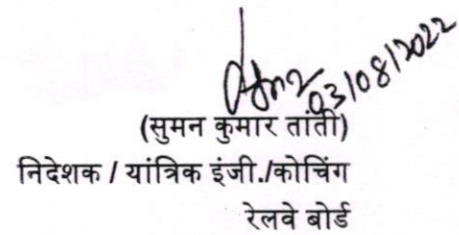 03/08/2022
(सुमन कुमार तांती)
निदेशक / यांत्रिक इंजी./कोचिंग
रेलवे बोर्ड